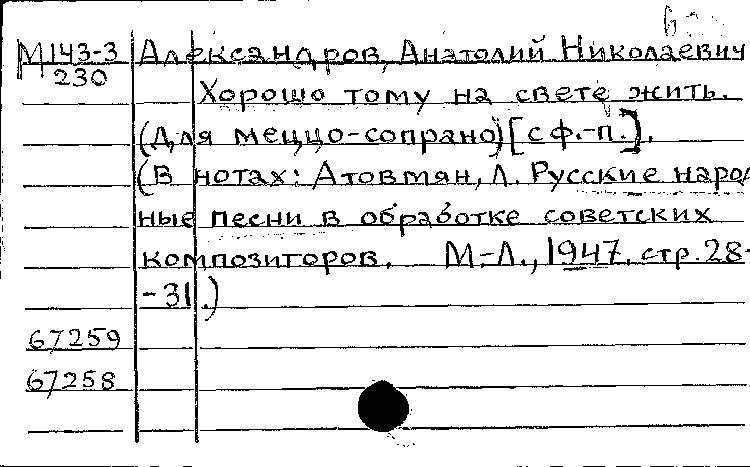 М143-3 Александров, Анатолий Николаевич
230
Хорошо тому на свете жить.
(Для меццо-сопрано) [с ф.-п.].
(В нотах: Атовмян, Л. Русские народ
ные песни в обработке советских
композиторов. М.-Л., 1947, стр. 28-
-31.)
67259
67258